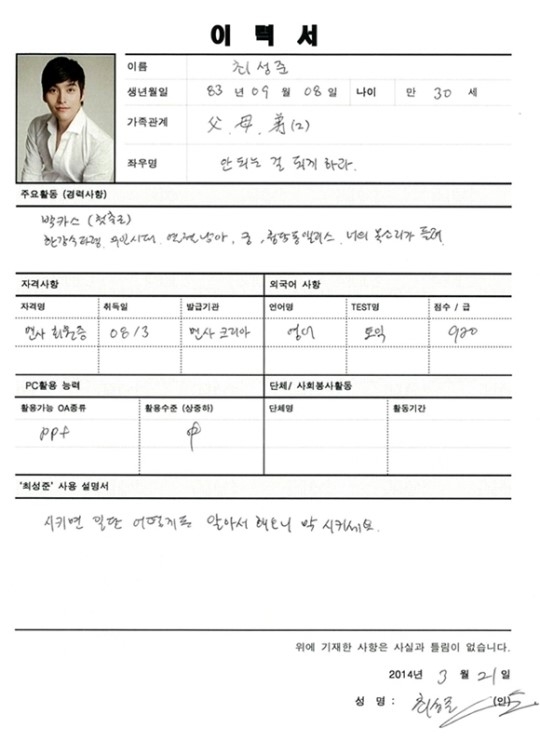 이 력 서
이름 최성준
생년월일 83 년 09 월 08 일 나이 만 30 세
가족관계 父, 母, 弟(2)
좌우명 안 되는 걸 되게 하라.
주요활동 (경력사항)
박카스
한강수타령, 무인시대, 연개남아, 궁, 청담동앨리스, 너의 목소리가 들려
자격사항 외국어 사항
자격명 취득일 발급기관 언어명 TEST명 점수 / 급
08/3 코리아 영어 토익 920
PC활용 능력 단체/ 사회봉사활동
활용가능 OA종류 활용수준 (상중하) 단체명 활동기간
ppt 中
'최성준' 사용 설명서
시키면 일단 어떻게든 알아서 해오니 막 시키세요.
위에 기재한 사항은 사실과 틀림이 없습니다.
2014년 3 월 21 일
성 명 : 최성준 (인)